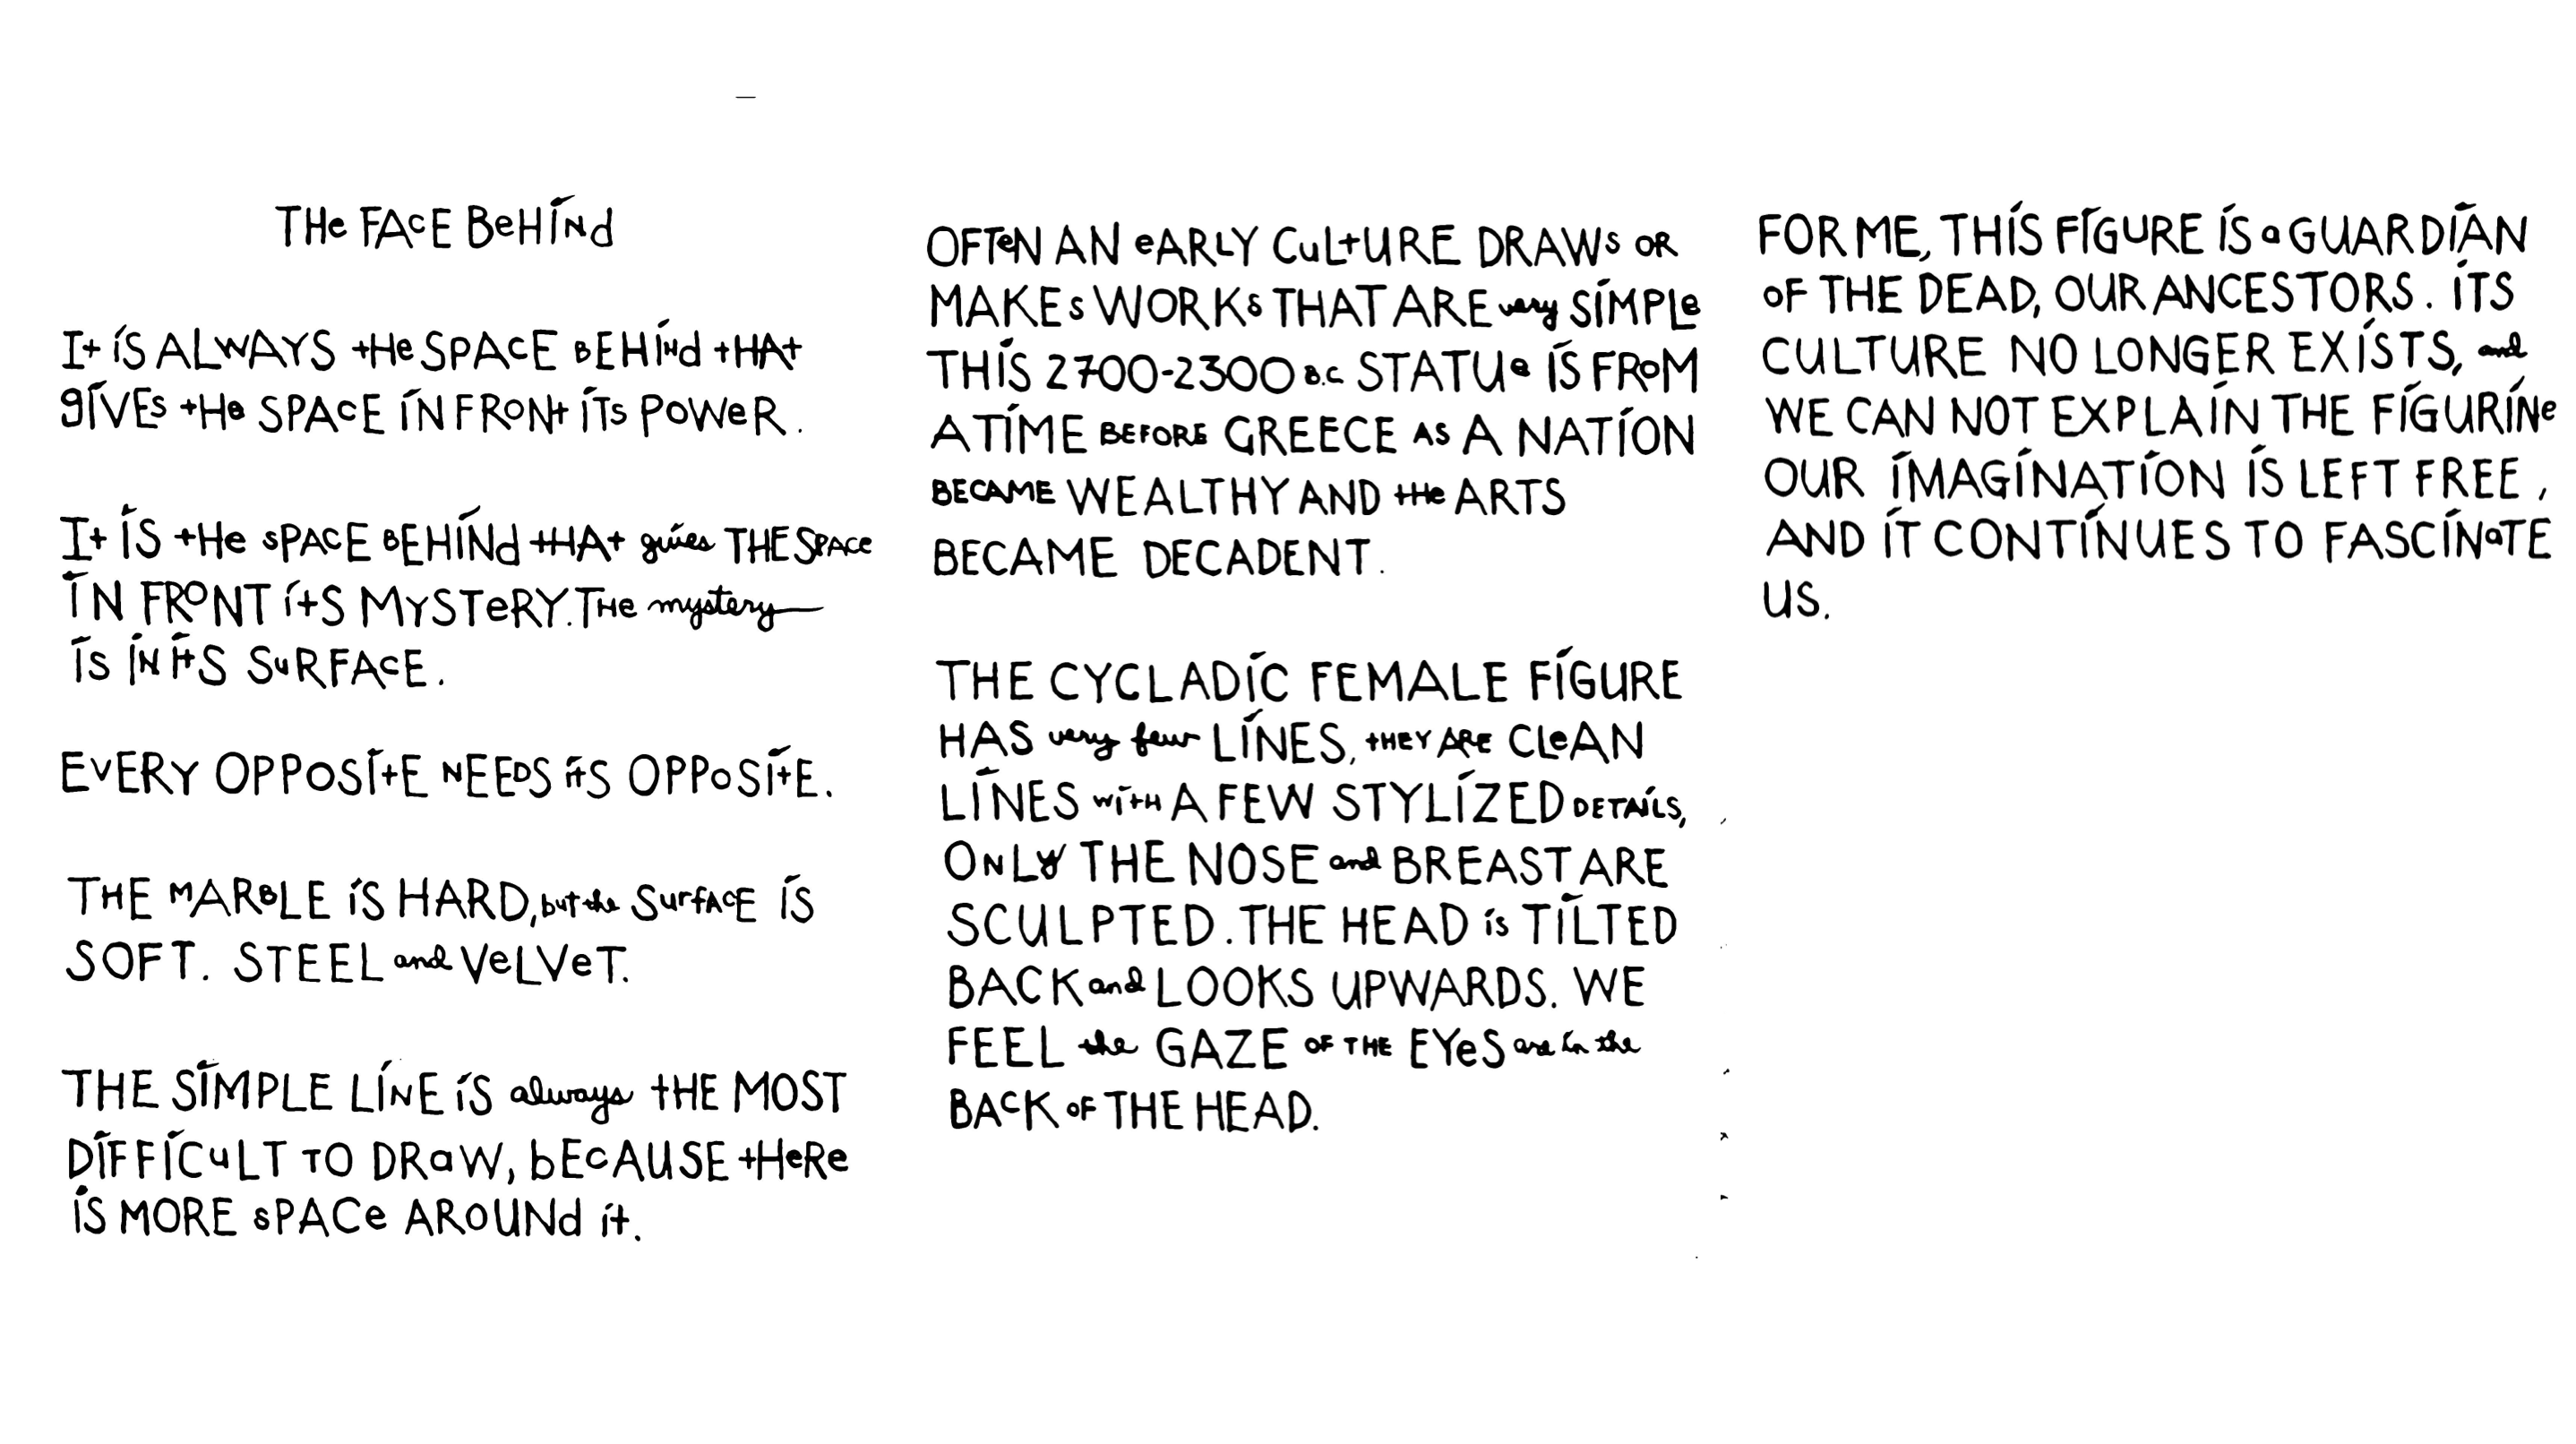 THe FAcE BeHINd
It iS ALWAYS tHe SPAcE BEHINd tHAt
gIVEs tHe SPAcE IN FRoNt ITs PoWeR.
It IS tHe sPAcE BEHINd tHAt gives THE SPAce
IN FRoNT itS MYSTeRY. THe mystery
Is IN itS SuRFAcE.
EVERY OPPOSItE NEEDS itS OPPoSItE.
THE MARBLE iS HARD, but the SurfAcE IS
SOFT. STEEL and VeLVeT.
THE SIMPLE LINE iS always tHE MOST
DIFFICuLT TO DRaW, bEcAUSE tHeRe
IS MORE sPACe AROUNd it.
OFTeN AN eARLY CuLtURE DRAWs OR
MAKEs WORKs THAT ARE very SIMPLe
THIS 2700-2300 B.C STATUe IS FRoM
A TIME BEFORE GREECE AS A NATION
BECAME WEALTHY AND tHe ARTS
BECAME DECADENT.
THE CYCLADIC FEMALE FIGURE
HAS very few LINES, tHEY ARE CLeAN
LINES witH A FEW STYLIZED DETAILS,
ONLY THE NOSE and BREAST ARE
SCULPTED. THE HEAD is TILTED
BACK and LOOKS UPWARDS. WE
FEEL the GAZE OF THE EYeS are in the
BAcK oF THE HEAD.
FOR ME, THIS FIGURE IS a GUARDIAN
oF THE DEAD, OUR ANCESTORS. ITS
CULTURE NO LONGER EXISTS, and
WE CAN NOT EXPLAIN THE FIGURINe
OUR IMAGINATION IS LEFT FREE,
AND IT CONTINUES TO FASCINaTE
US.